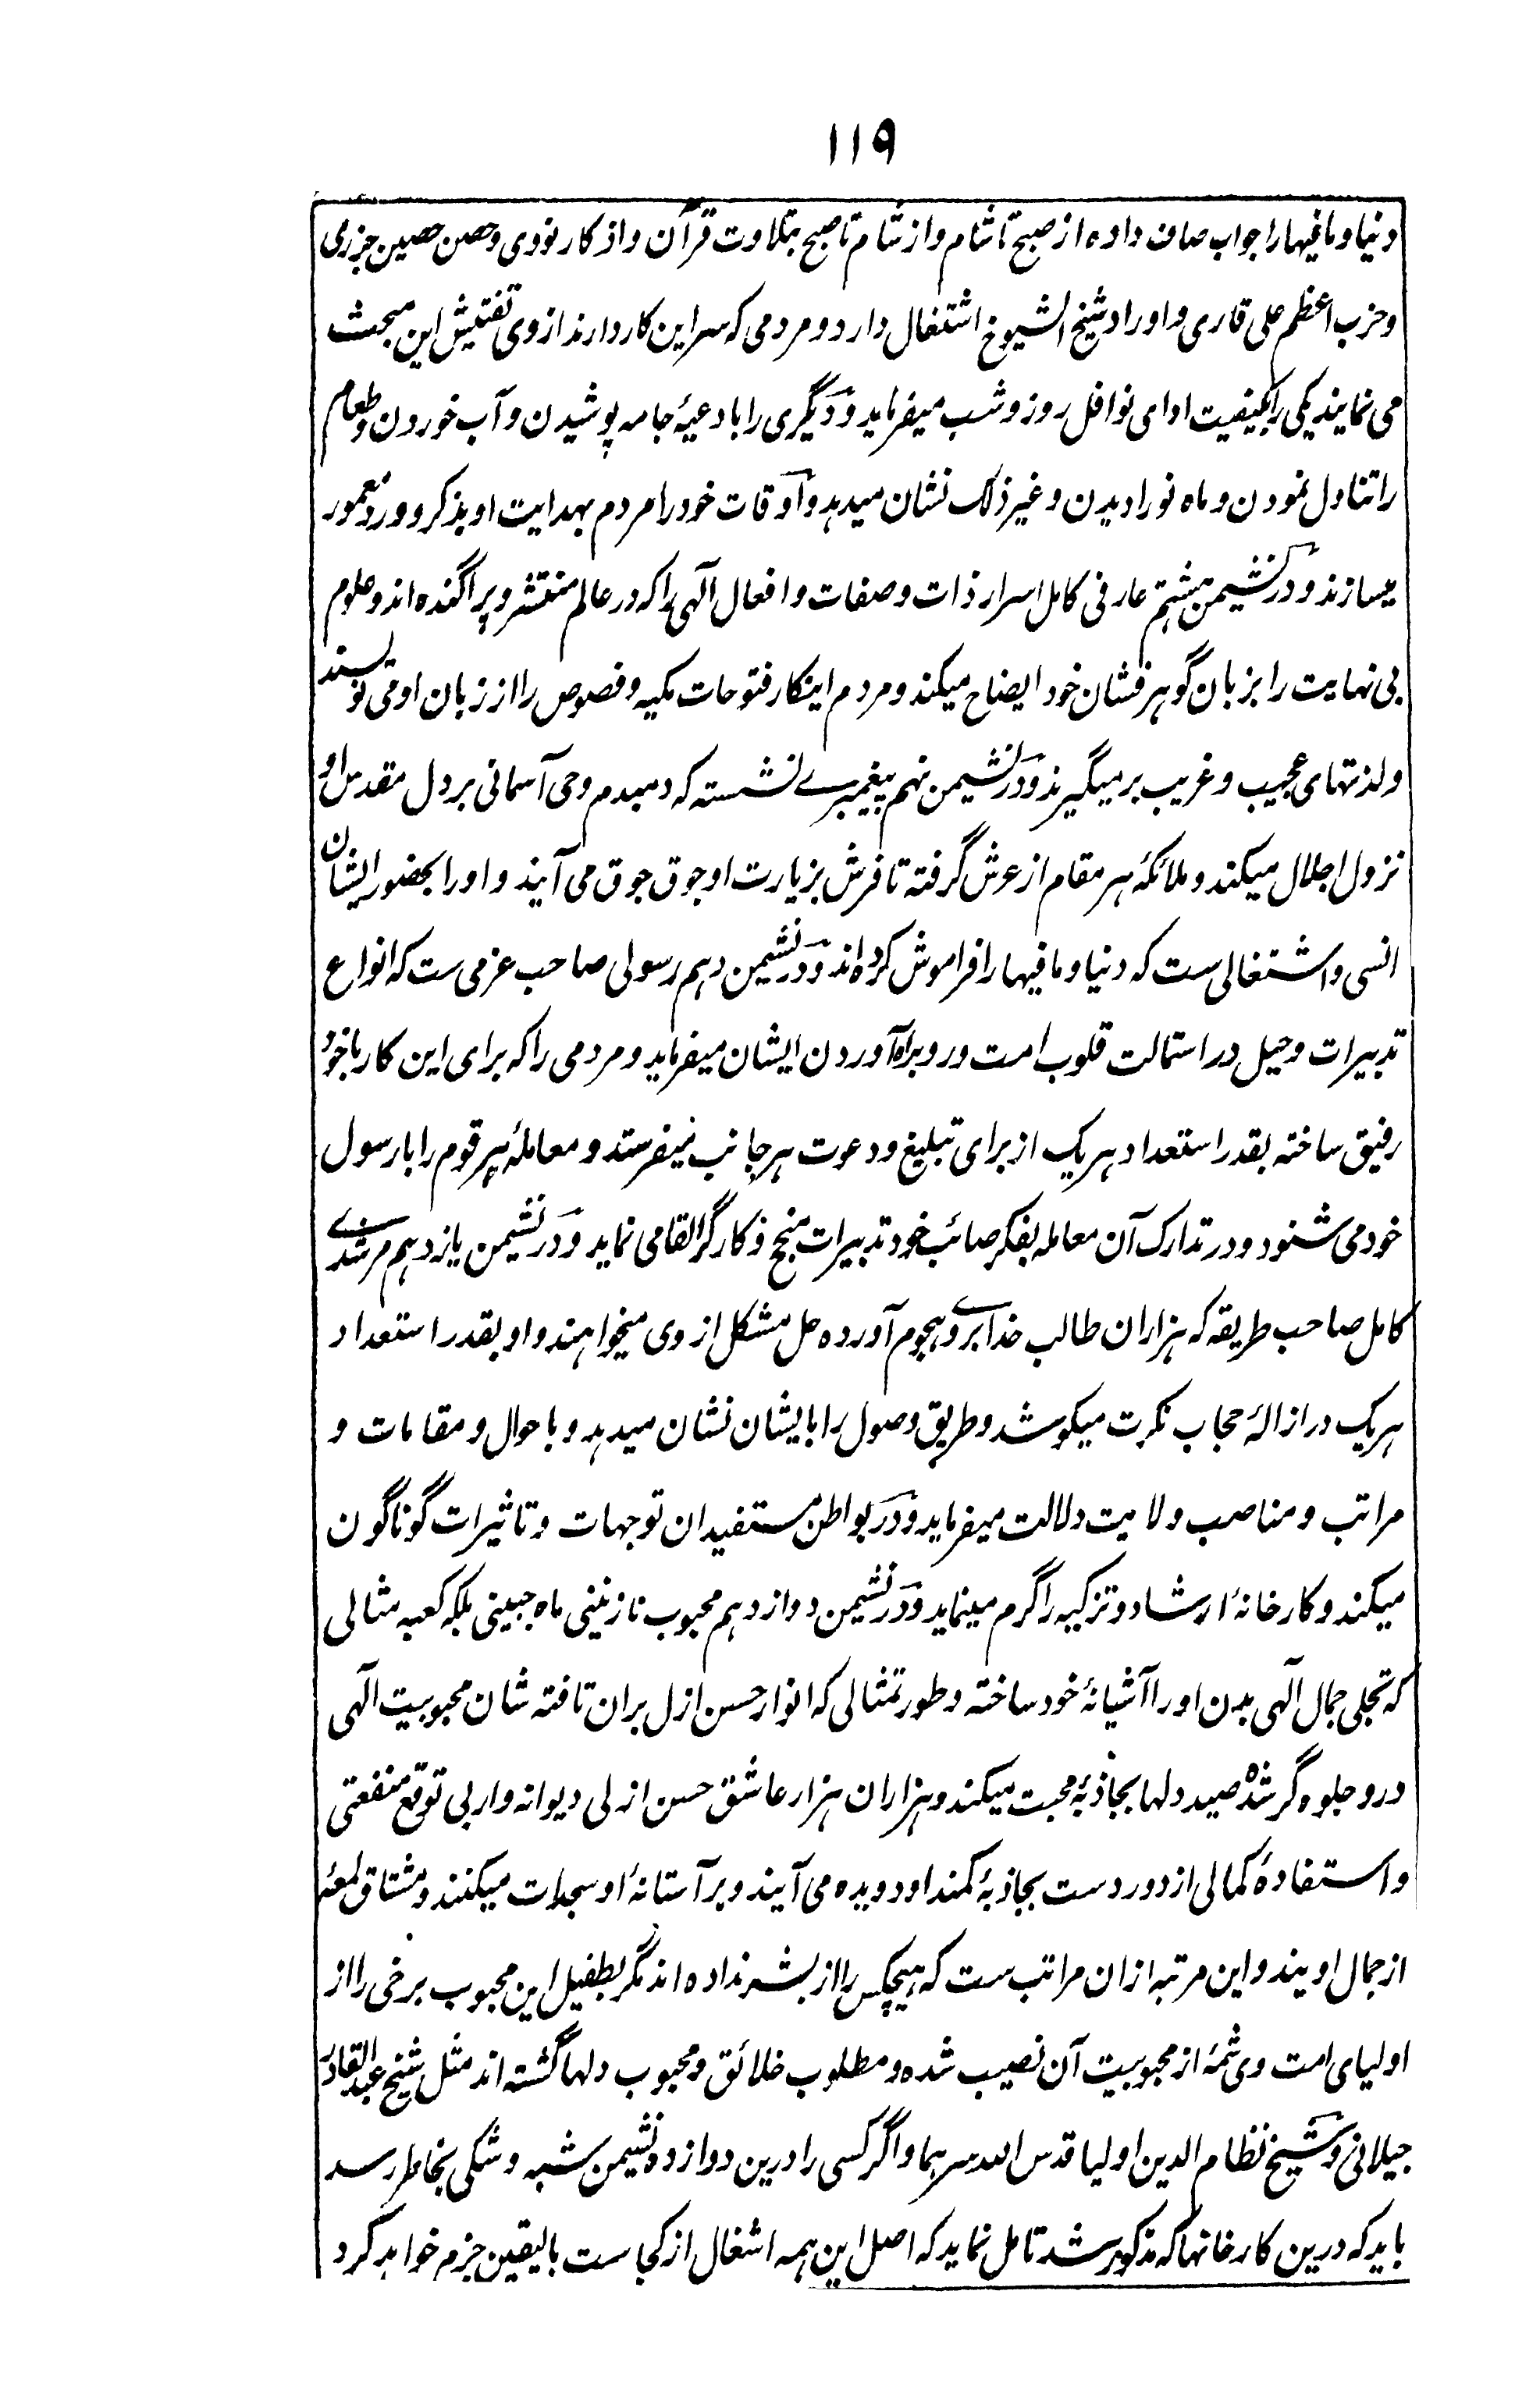 ١١٩
دنیا و مافیها را جواب صاف داده از صبح تا شام و از شام تا صبح بتلاوت قرآن و اذکار نووی و حصن حصین جزری
و حزب اعظم علی قاری و اوراد شیخ الشیوخ اشتغال دارد و مردمی که سر این کار دارند از وی تفتیش این مبحث
می نمایند یکی را بکیفیت ادای نوافل روز و شب میفرماید و دیگری را بادعیهٔ جامه پوشیدن و آب خوردن و طعام
را تناول نمودن و ماه نو را دیدن و غیر ذلک نشان میدهد و اوقات خود را مردم بهدایت او بذکر و ورد معمور
میسازند و در نشیمن هشتم عارفی کامل اسرار ذات و صفات و افعال آلهی را که در عالم منتشر و پراگنده اند و علوم
بی نهایت را بزبان گوهر فشان خود ایضاح میکند و مردم اینکار فتوحات مکیه و فصوص را از زبان او می نویسند
و لذتهای عجیب و غریب بر میگیرند و در نشیمن نهم پیغمبرے نشسته که دمبدم وحی آسمانی بر دل مقدس او
نزول اجلال میکند و ملائکهٔ هر مقام از عرش گرفته تا فرش بزیارت او جوق جوق می آیند و او را بحضور ایشان
انسی و اشتغالی ست که دنیا و مافیها را فراموش کرده اند و در نشیمن دهم رسولی صاحب عزمی ست که انواع
تدبیرات و حیل در استمالت قلوب امت و روبراه آوردن ایشان میفرماید و مردمی را که برای این کار با خود
رفیق ساخته بقدر استعداد هر یک از برای تبلیغ و دعوت هر جانب میفرستد و معاملهٔ هر قوم را با رسول
خود می شنود و در تدارک آن معامله بفکر صائب خود تدبیرات منجح و کارگر القا می نماید و در نشیمن یازدهم مرشدے
کامل صاحب طریقه که هزاران طالب خدا برو ے هجوم آورده حل مشکل از وی میخواهند و او بقدر استعداد
هر یک در ازالهٔ حجاب نکرت میکوشد و طریق وصول را بایشان نشان میدهد و باحوال و مقامات و
مراتب و مناصب ولایت دلالت میفرماید و در بواطن مستفیدان توجهات و تاثیرات گوناگون
میکند و کارخانهٔ ارشاد و تزکیه را گرم مینماید و در نشیمن دوازدهم محبوب نازنینی ماه جبینی بلکه کعبه مثالی
که تجلی جمال آلهی بدن او را آشیانهٔ خود ساخته و طور تمثالی که انوار حسن ازل بران تافته شان محبوبیت آلهی
درو جلوه گر شده صید دلها بجاذبهٔ محبت میکند و هزاران هزار عاشق حسن ازلی دیوانه وار بی توقع منفعتی
و استفادهٔ کمالی از دور دست بجاذبهٔ کمند او دویده می آیند و بر آستانهٔ او سجدات میکنند و مشتاق لمعهٔ
از جمال اویند و این مرتبه ازان مراتب ست که هیچکس را از بشر نداده اند مگر بطفیل این محبوب برخی را از
اولیای امت وی شمهٔ از محبوبیت آن نصیب شده و مطلوب خلائق و محبوب دلها گشته اند مثل شیخ عبد القادر
جیلانی و شیخ نظام الدین اولیا قدس الله سرهما و اگر کسی را درین دوازده نشیمن شبه و شکی بخاطر رسد
باید که درین کارخانها که مذکور شد تامل نماید که اصل این همه اشغال از کجاست بالیقین جزم خواهد کرد